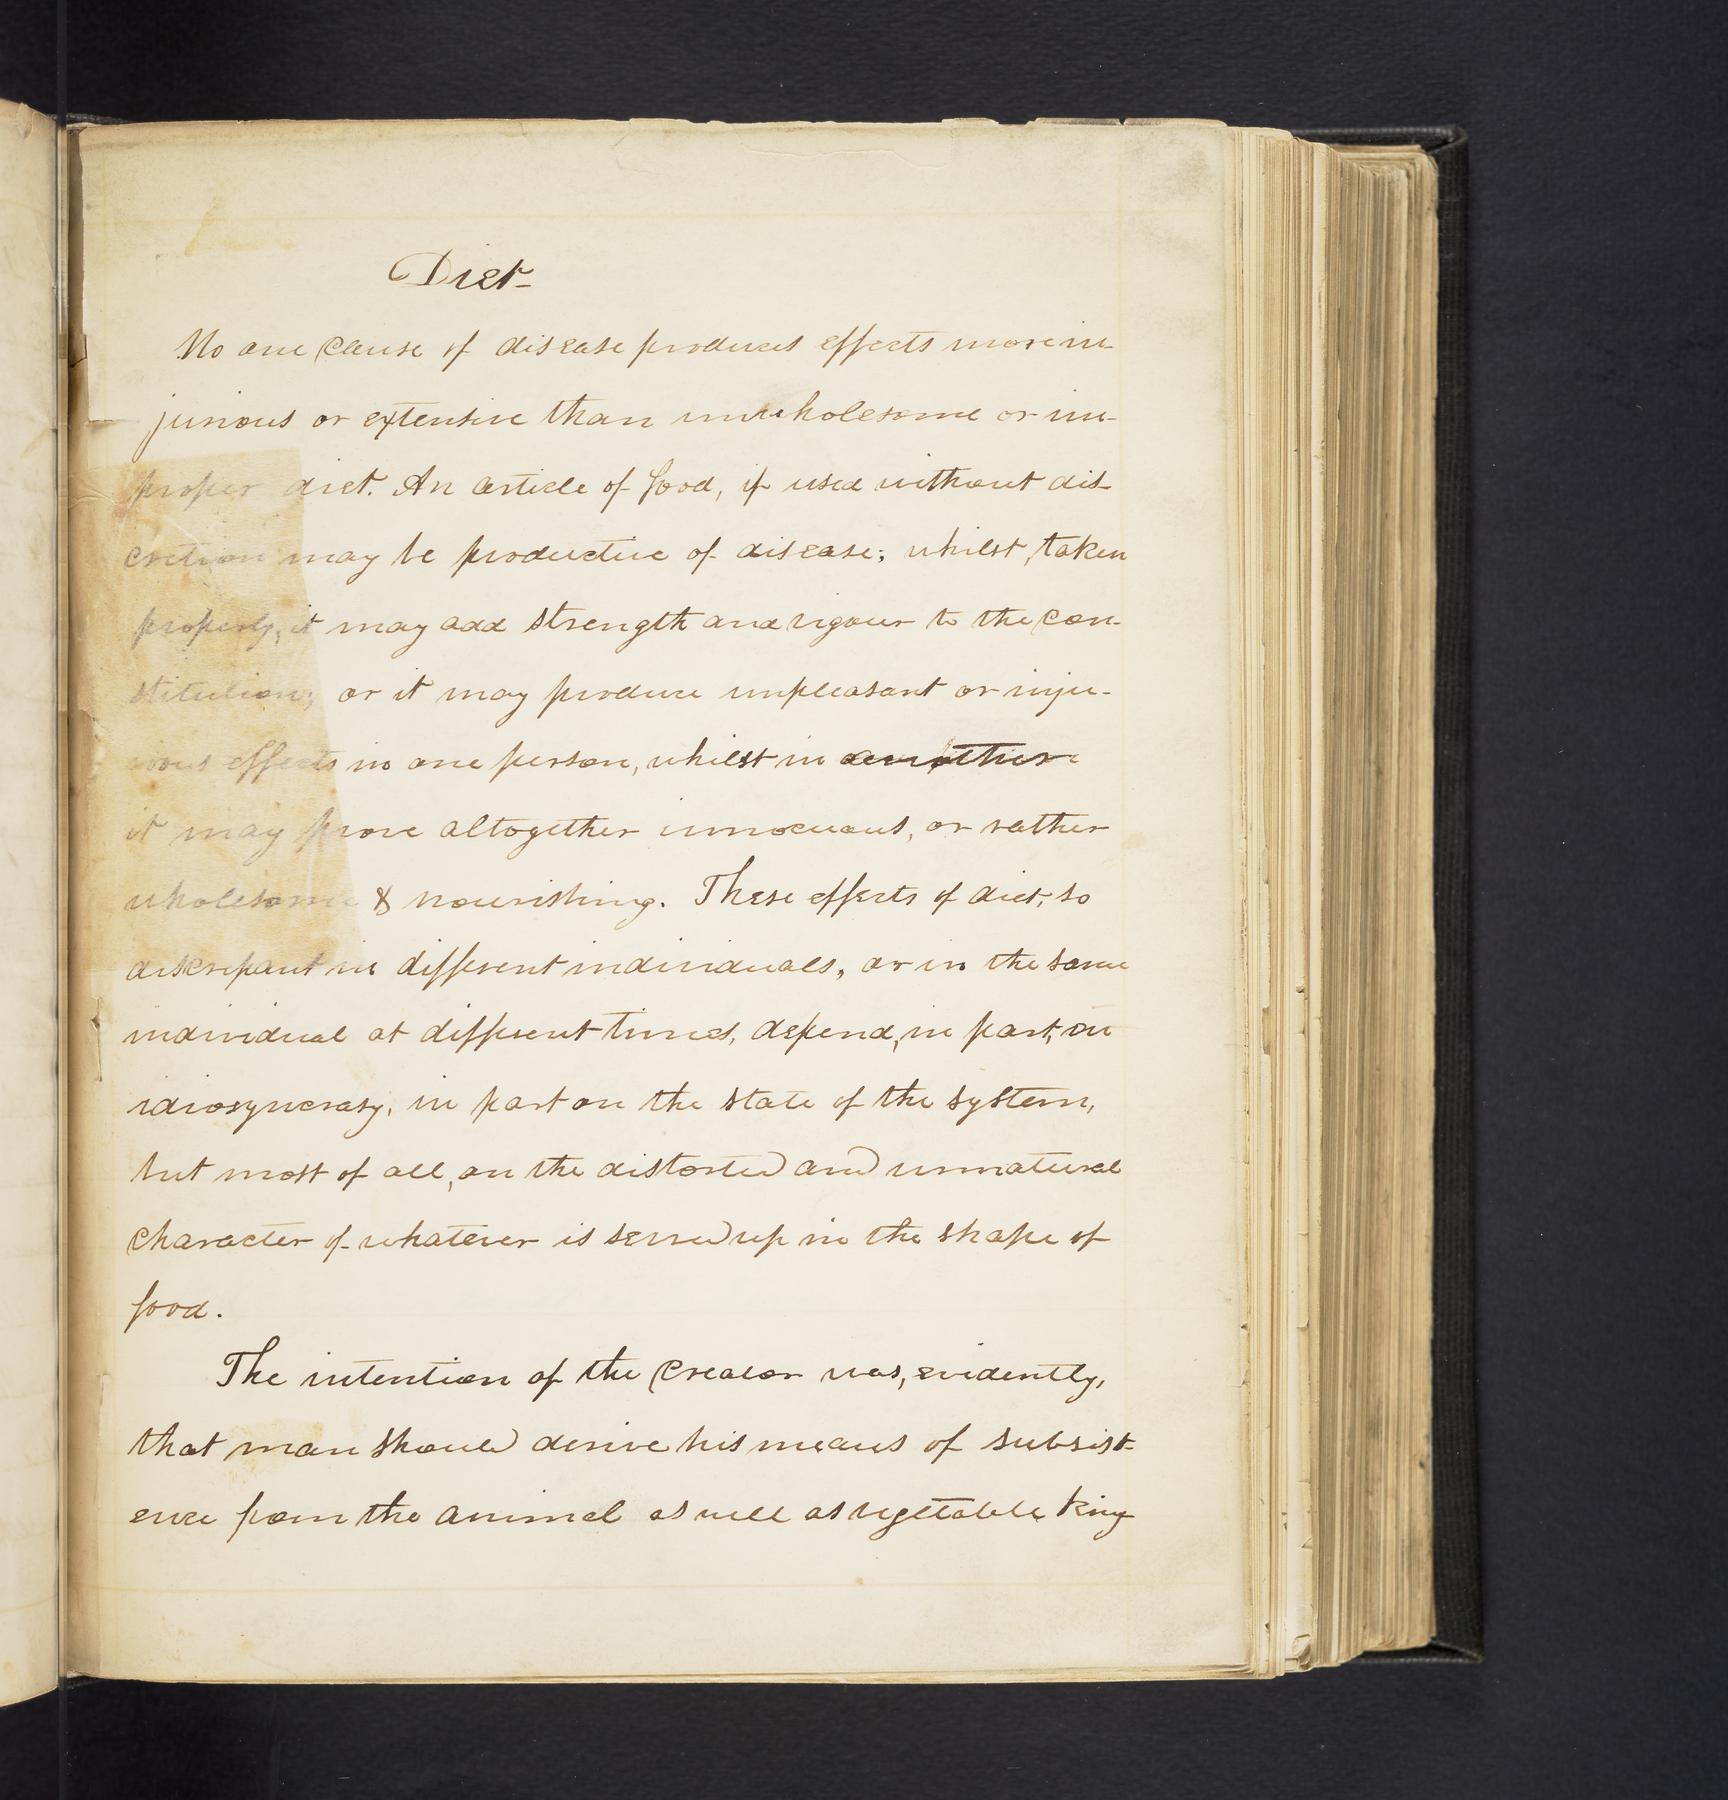 Diet-
No one cause of disease produces effects more in-
jurious or extensive than unwholesome or im-
proper diet. An article of food, if used without dis-
cretion may be productive of disease; whilst, taken
properly, it may add strength and vigour to the con-
stitution; or it may produce unpleasant or inju-
rious effects in one person, whilst in another
it may prove altogether innocuous, or rather
wholesome & nourishing. These effects of diet, so
discrepant in different individuals, or in the same
individual at different times, depend, in part, on
idiosyncrasy, in part on the state of the system,
but most of all, on the distorted and unnatural
character of whatever is served up in the shape of
food.
The intention of the Creator was, evidently,
that man should derive his means of subsist-
ence from the animal as well as vegetable king-